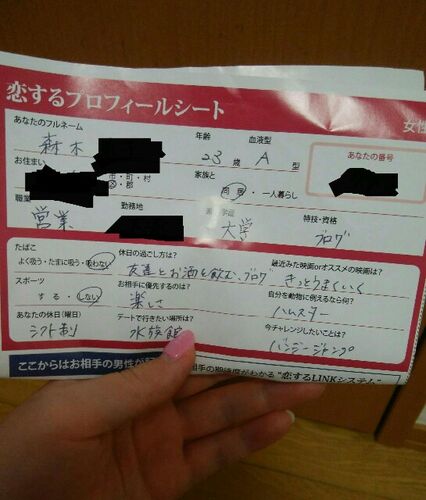 恋するプロフィールシート 女性
あなたのフルネーム 年齢 血液型
森木 23歳 A型 あなたの番号
お住まい 家族と
市・町・村 同居・一人暮らし
区・郡
職業 勤務地 特技・資格
営業 大学 ブログ
たばこ 休日の過ごし方は? 最近みた映画orオススメの映画は?
よく吸う・たまに吸う・吸わない 友達とお酒を飲む、ブログ きっとうまくいく
スポーツ お相手に優先するのは? 自分を動物に例えるなら何?
する・しない 楽しさ ハムスター
あなたの休日(曜日) デートで行きたい場所は? 今チャレンジしたいことは?
シフトあり 水族館 バンジージャンプ
ここからはお相手の男性が
相手の期待度がわかる "恋するLINKシステム"